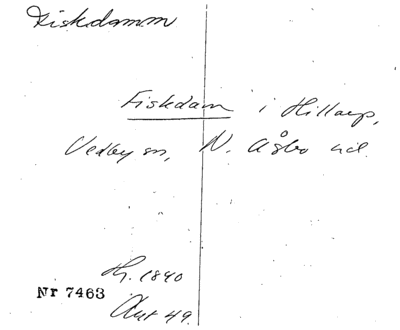 Fiskdamm
Fiskdam i Hillarp,
Vedby sn, N. Åsbo hd.
Nr 7463
1840
49.